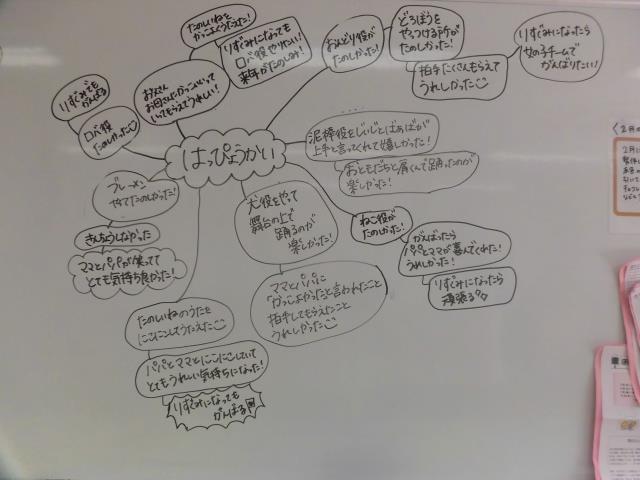 はっぴょうかい
たのしいねを
かっこよくうたえた!
りずむになっても
ロバ役やりたい!
来年がたのしみ!
お父さん
お母さんにかっこいいって
いってもらえてうれしい!
りずむでも
がんばる
ロバ役
たのしかった
おんどり役が
たのしかった!
どろぼうを
やっつける所が
たのしかった!
拍手たくさんもらえて
うれしかった
りずむになったら
女の子チームで
がんばりたい!
泥棒役をじいじとばあばが
上手と言ってくれて嬉しかった!
おともだちと肩くんで踊ったのが
楽しかった!
ブレーメン
やれてたのしかった!
きんちょうしなかった
ママとパパが笑ってて
とても気持ち良かった!
犬役をやって
舞台の上で
踊るのが
楽しかった!
ママとパパに
「かっこよかった」と言われたこと
拍手してもらえたこと
うれしかった
ねこ役が
たのしかった!
がんばったら
パパとママが喜んでくれた!
うれしかった!
りずむになったら
頑張る
たのしいねのうたを
にこにこしてうたえた
パパとママとにこにこしていて
とてもうれしい気持ちになった!
りずむになっても
がんばる